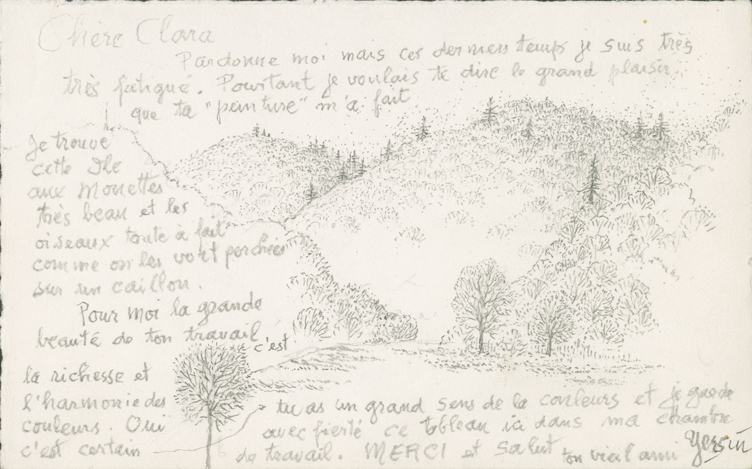 Chère Clara
Pardonne moi mais ces derniers temps je suis très
très fatigué. Pourtant je voulais te dire le grand plaisir,
que ta "peinture" m'a fait
Je trouve
cette Ile
aux Mouettes
très beau et les
oiseaux toute à fait
comme on les voit perchés
sur un caillou.
Pour moi la grande
beauté de ton travail
c'est
la richesse et
l'harmonie des
couleurs. Oui
c'est certain
tu as un grand sens de la couleurs et je garde
avec fierté ce tableau ici dans ma chambre
de travail. MERCI et Salut ton vieil ami Yersin